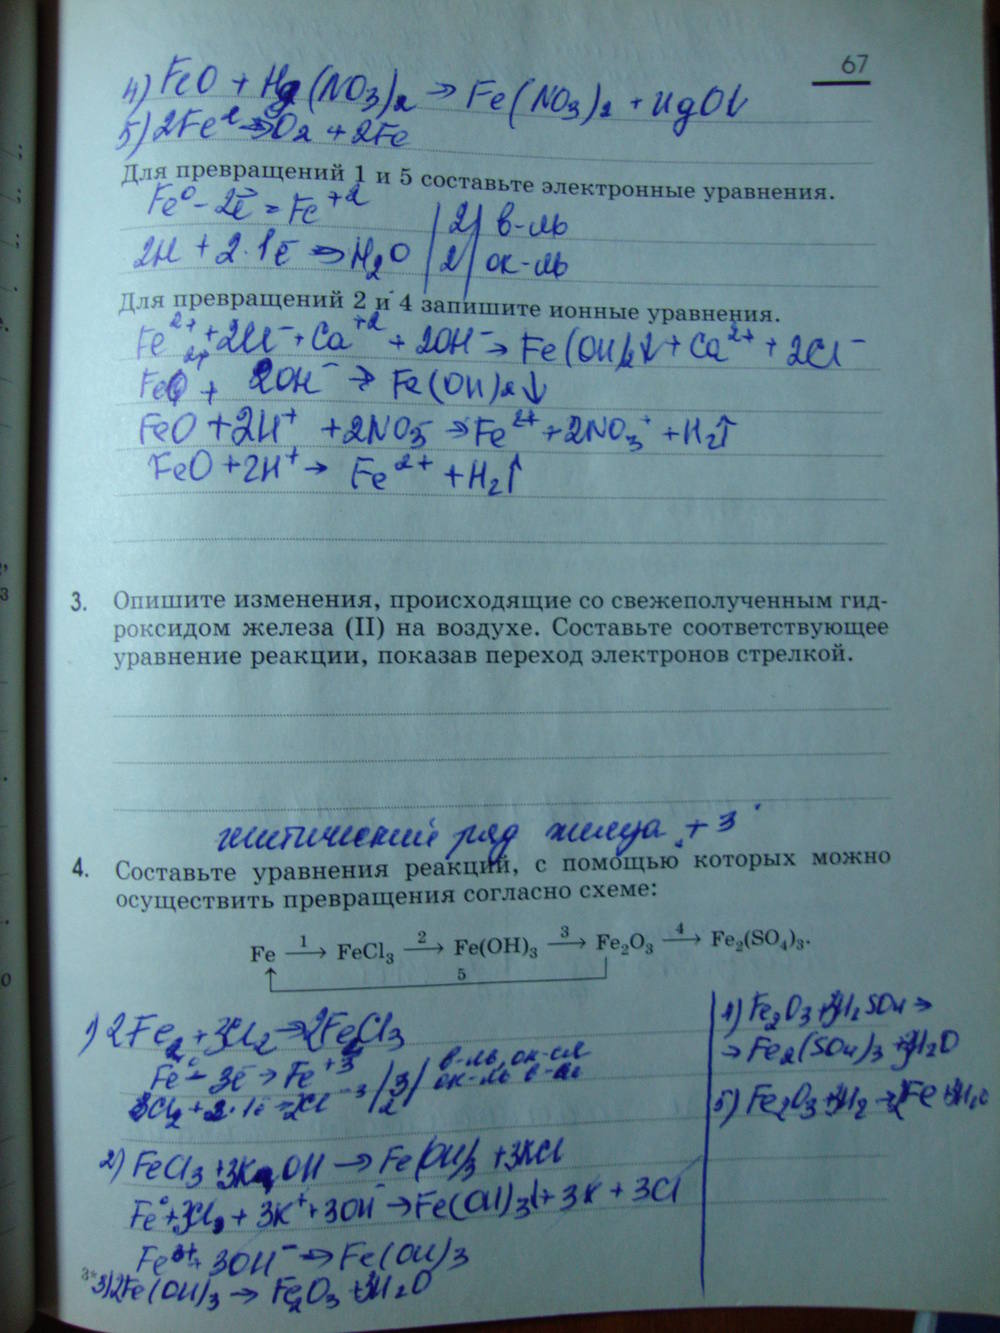 67
4) FeO + Hg(NO3)2 → Fe(NO3)2 + HgO↓
5) 2Fe2 → O2 + 2Fe
Для превращений 1 и 5 составьте электронные уравнения.
Fe⁰ - 2ē = Fe⁺² | 2 | в-ль
2H + 2·1ē → H2O | 2 | ок-ль
Для превращений 2 и 4 запишите ионные уравнения.
Fe²⁺ + 2Cl⁻ + Ca⁺² + 2OH⁻ → Fe(OH)2↓ + Ca²⁺ + 2Cl⁻
2OH⁻ → Fe(OH)2↓
FeO + 2H⁺ + 2NO3 → Fe²⁺ + 2NO3⁺ + H2↑
FeO + 2H⁺ → Fe²⁺ + H2↑
3. Опишите изменения, происходящие со свежеполученным гид-
роксидом железа (II) на воздухе. Составьте соответствующее
уравнение реакции, показав переход электронов стрелкой.
ряд железа +3
4. Составьте уравнения реакций, с помощью которых можно
осуществить превращения согласно схеме:
Fe 1→ FeCl3 2→ Fe(OH)3 3→ Fe2O3 4→ Fe2(SO4)3.
5
1) 2Fe2 + 3Cl2 → 2FeCl3
Fe⁰ - 3ē → Fe⁺³
2) FeCl3 + 3KOH → Fe(OH)3 + 3KCl
+ 3K⁺ + 3OH → Fe(OH)3↓ + 3K + 3Cl
Fe³⁺ + 3OH⁻ → Fe(OH)3
3) 2Fe(OH)3 → Fe2O3 + 3H2O
4) Fe2O3 + 3H2SO4 →
→ Fe2(SO4)3 + 3H2O
5) Fe2O3 + 3H2 → 2Fe + 3H2O